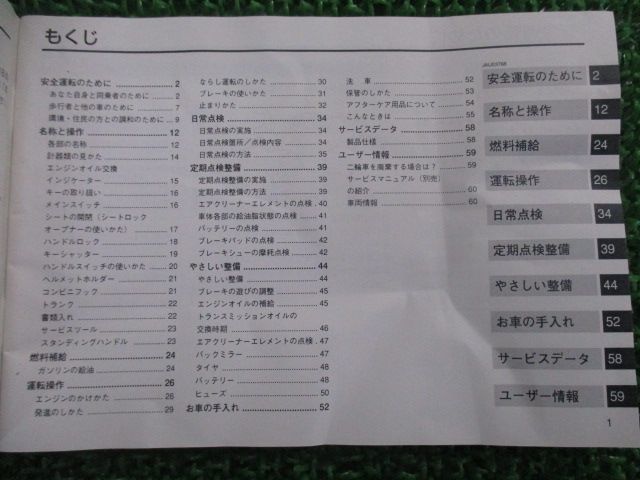 もくじ
安全運転のために 2
あなた自身と同乗者のために 2
歩行者と他の車のために 7
環境・住民の方との調和のために 9
名称と操作 12
各部の名称 12
計器類の見かた 14
エンジンオイル交換
インジケーター 15
キーの取り扱い 16
メインスイッチ 16
シートの開閉(シートロック
オープナーの使いかた) 17
ハンドルロック 18
キーシャッター 19
ハンドルスイッチの使いかた 20
ヘルメットホルダー 21
コンビニフック 21
トランク 22
書類入れ 22
サービスツール 23
スタンディングハンドル 23
燃料補給 24
ガソリンの給油 24
運転操作 26
エンジンのかけかた 26
発進のしかた 29
ならし運転のしかた 30
ブレーキの使いかた 31
止まりかた 32
日常点検 34
日常点検の実施 34
日常点検箇所/点検内容 34
日常点検の方法 35
定期点検整備 39
定期点検整備の実施 39
定期点検整備の方法 40
エアクリーナーエレメントの点検 40
車体各部の給油脂状態の点検 41
バッテリーの点検 41
ブレーキパッドの点検 42
ブレーキシューの摩耗点検 42
やさしい整備 44
ブレーキの遊びの調整 45
エンジンオイルの補給 45
トランスミッションオイルの
交換時期 46
エアクリーナーエレメントの点検 47
バックミラー 47
タイヤ 48
バッテリー 48
ヒューズ 50
お車の手入れ 52
洗 車 52
保管のしかた 53
アフターケア用品について 54
こんなときは 55
サービスデータ 58
製品仕様 58
ユーザー情報 59
二輪車を廃棄する場合は? 59
サービスマニュアル(別売)
の紹介 60
車両情報 60
JAU03788
安全運転のために 2
名称と操作 12
燃料補給 24
運転操作 26
日常点検 34
定期点検整備 39
やさしい整備 44
お車の手入れ 52
サービスデータ 58
ユーザー情報 59
1